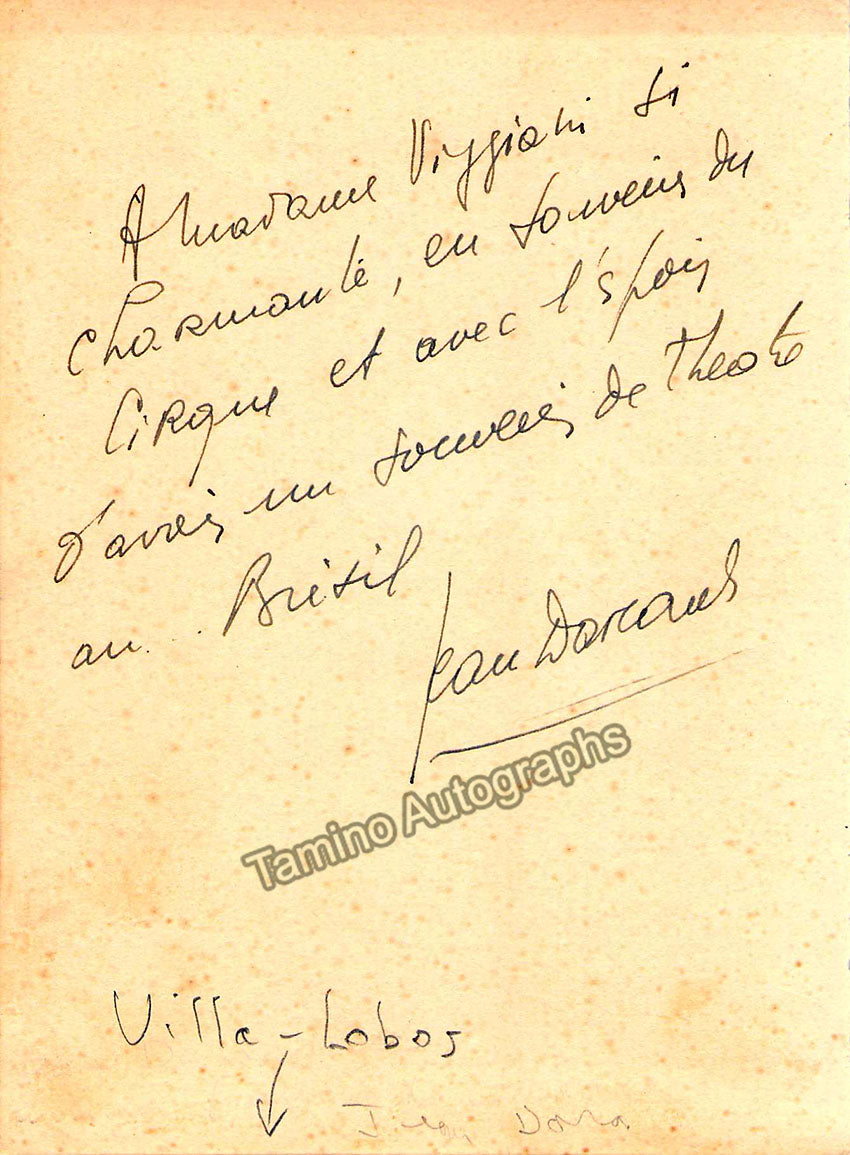 A madame Viggiani si
charmante, en souvenir du
Cirque et avec l'espoir
d'avoir un souvenir de theatre
au . . Brésil
Jean Darcante
Tamino Autographs
Villa-Lobos
Jean